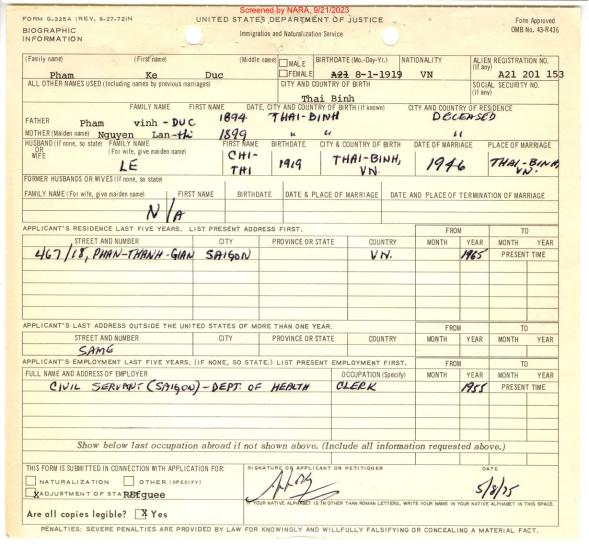 Screened by NARA, 9/21/2023
FORM G-325A (REV. 8-27-72)N
UNITED STATES DEPARTMENT OF JUSTICE
Form Approved
OMB No. 43-R436
BIOGRAPHIC INFORMATION
Immigration and Naturalization Service
(Family name) (First name) (Middle name) MALE FEMALE BIRTHDATE (Mo.-Day-Yr.) NATIONALITY ALIEN REGISTRATION NO. (If any)
Pham Ke Duc A21 8-1-1919 VN A21 201 153
ALL OTHER NAMES USED (Including names by previous marriages) CITY AND COUNTRY OF BIRTH SOCIAL SECURITY NO. (If any)
Thai Binh
FAMILY NAME FIRST NAME DATE, CITY AND COUNTRY OF BIRTH (If known) CITY AND COUNTRY OF RESIDENCE
FATHER Pham vinh - DUC 1894 THAI-BINH DECEASED
MOTHER (Maiden name) Nguyen Lan-thi 1899 " " "
HUSBAND (If none, so state) OR WIFE FAMILY NAME (For wife, give maiden name) FIRST NAME BIRTHDATE CITY & COUNTRY OF BIRTH DATE OF MARRIAGE PLACE OF MARRIAGE
LE CHI-THI 1919 THAI-BINH, VN. 1946 THAI-BINH, VN.
FORMER HUSBANDS OR WIVES (If none, so state)
FAMILY NAME (For wife, give maiden name) FIRST NAME BIRTHDATE DATE & PLACE OF MARRIAGE DATE AND PLACE OF TERMINATION OF MARRIAGE
N/A
APPLICANT'S RESIDENCE LAST FIVE YEARS. LIST PRESENT ADDRESS FIRST. FROM TO
STREET AND NUMBER CITY PROVINCE OR STATE COUNTRY MONTH YEAR MONTH YEAR
467/18, PHAN-THANH-GIAN SAIGON VN. 1965 PRESENT TIME
APPLICANT'S LAST ADDRESS OUTSIDE THE UNITED STATES OF MORE THAN ONE YEAR. FROM TO
STREET AND NUMBER CITY PROVINCE OR STATE COUNTRY MONTH YEAR MONTH YEAR
SAME
APPLICANT'S EMPLOYMENT LAST FIVE YEARS. (IF NONE, SO STATE.) LIST PRESENT EMPLOYMENT FIRST. FROM TO
FULL NAME AND ADDRESS OF EMPLOYER OCCUPATION (Specify) MONTH YEAR MONTH YEAR
CIVIL SERVANT (SAIGON) - DEPT. OF HEALTH CLERK 1955 PRESENT TIME
Show below last occupation abroad if not shown above. (Include all information requested above.)
THIS FORM IS SUBMITTED IN CONNECTION WITH APPLICATION FOR: SIGNATURE OF APPLICANT OR PETITIONER DATE
NATURALIZATION OTHER (SPECIFY)
X ADJUSTMENT OF STATUS REfguee 5/8/75
IF YOUR NATIVE ALPHABET IS IN OTHER THAN ROMAN LETTERS, WRITE YOUR NAME IN YOUR NATIVE ALPHABET IN THIS SPACE.
Are all copies legible? X Yes
PENALTIES: SEVERE PENALTIES ARE PROVIDED BY LAW FOR KNOWINGLY AND WILLFULLY FALSIFYING OR CONCEALING A MATERIAL FACT.